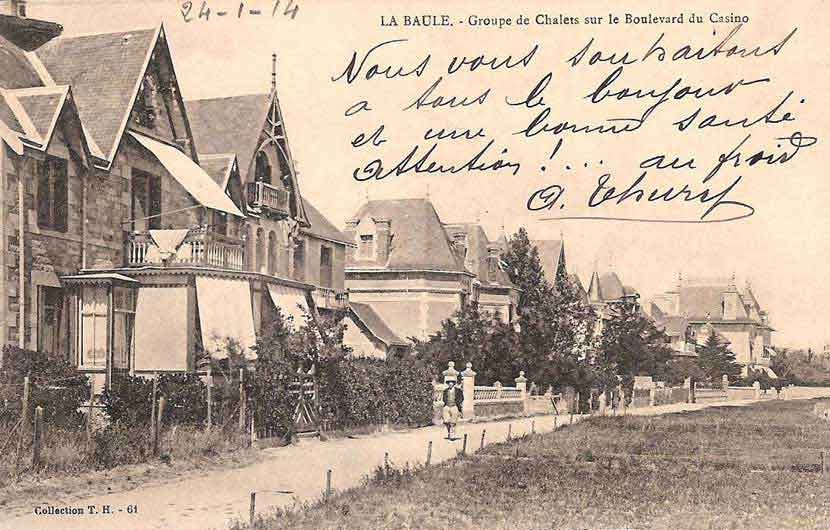 24-1-14
LA BAULE. - Groupe de Chalets sur le Boulevard du Casino
Nous vous souhaitons
a tous le bonjour
et une bonne santé
Attention !... au froid
A. Thury
Collection T. H. - 61